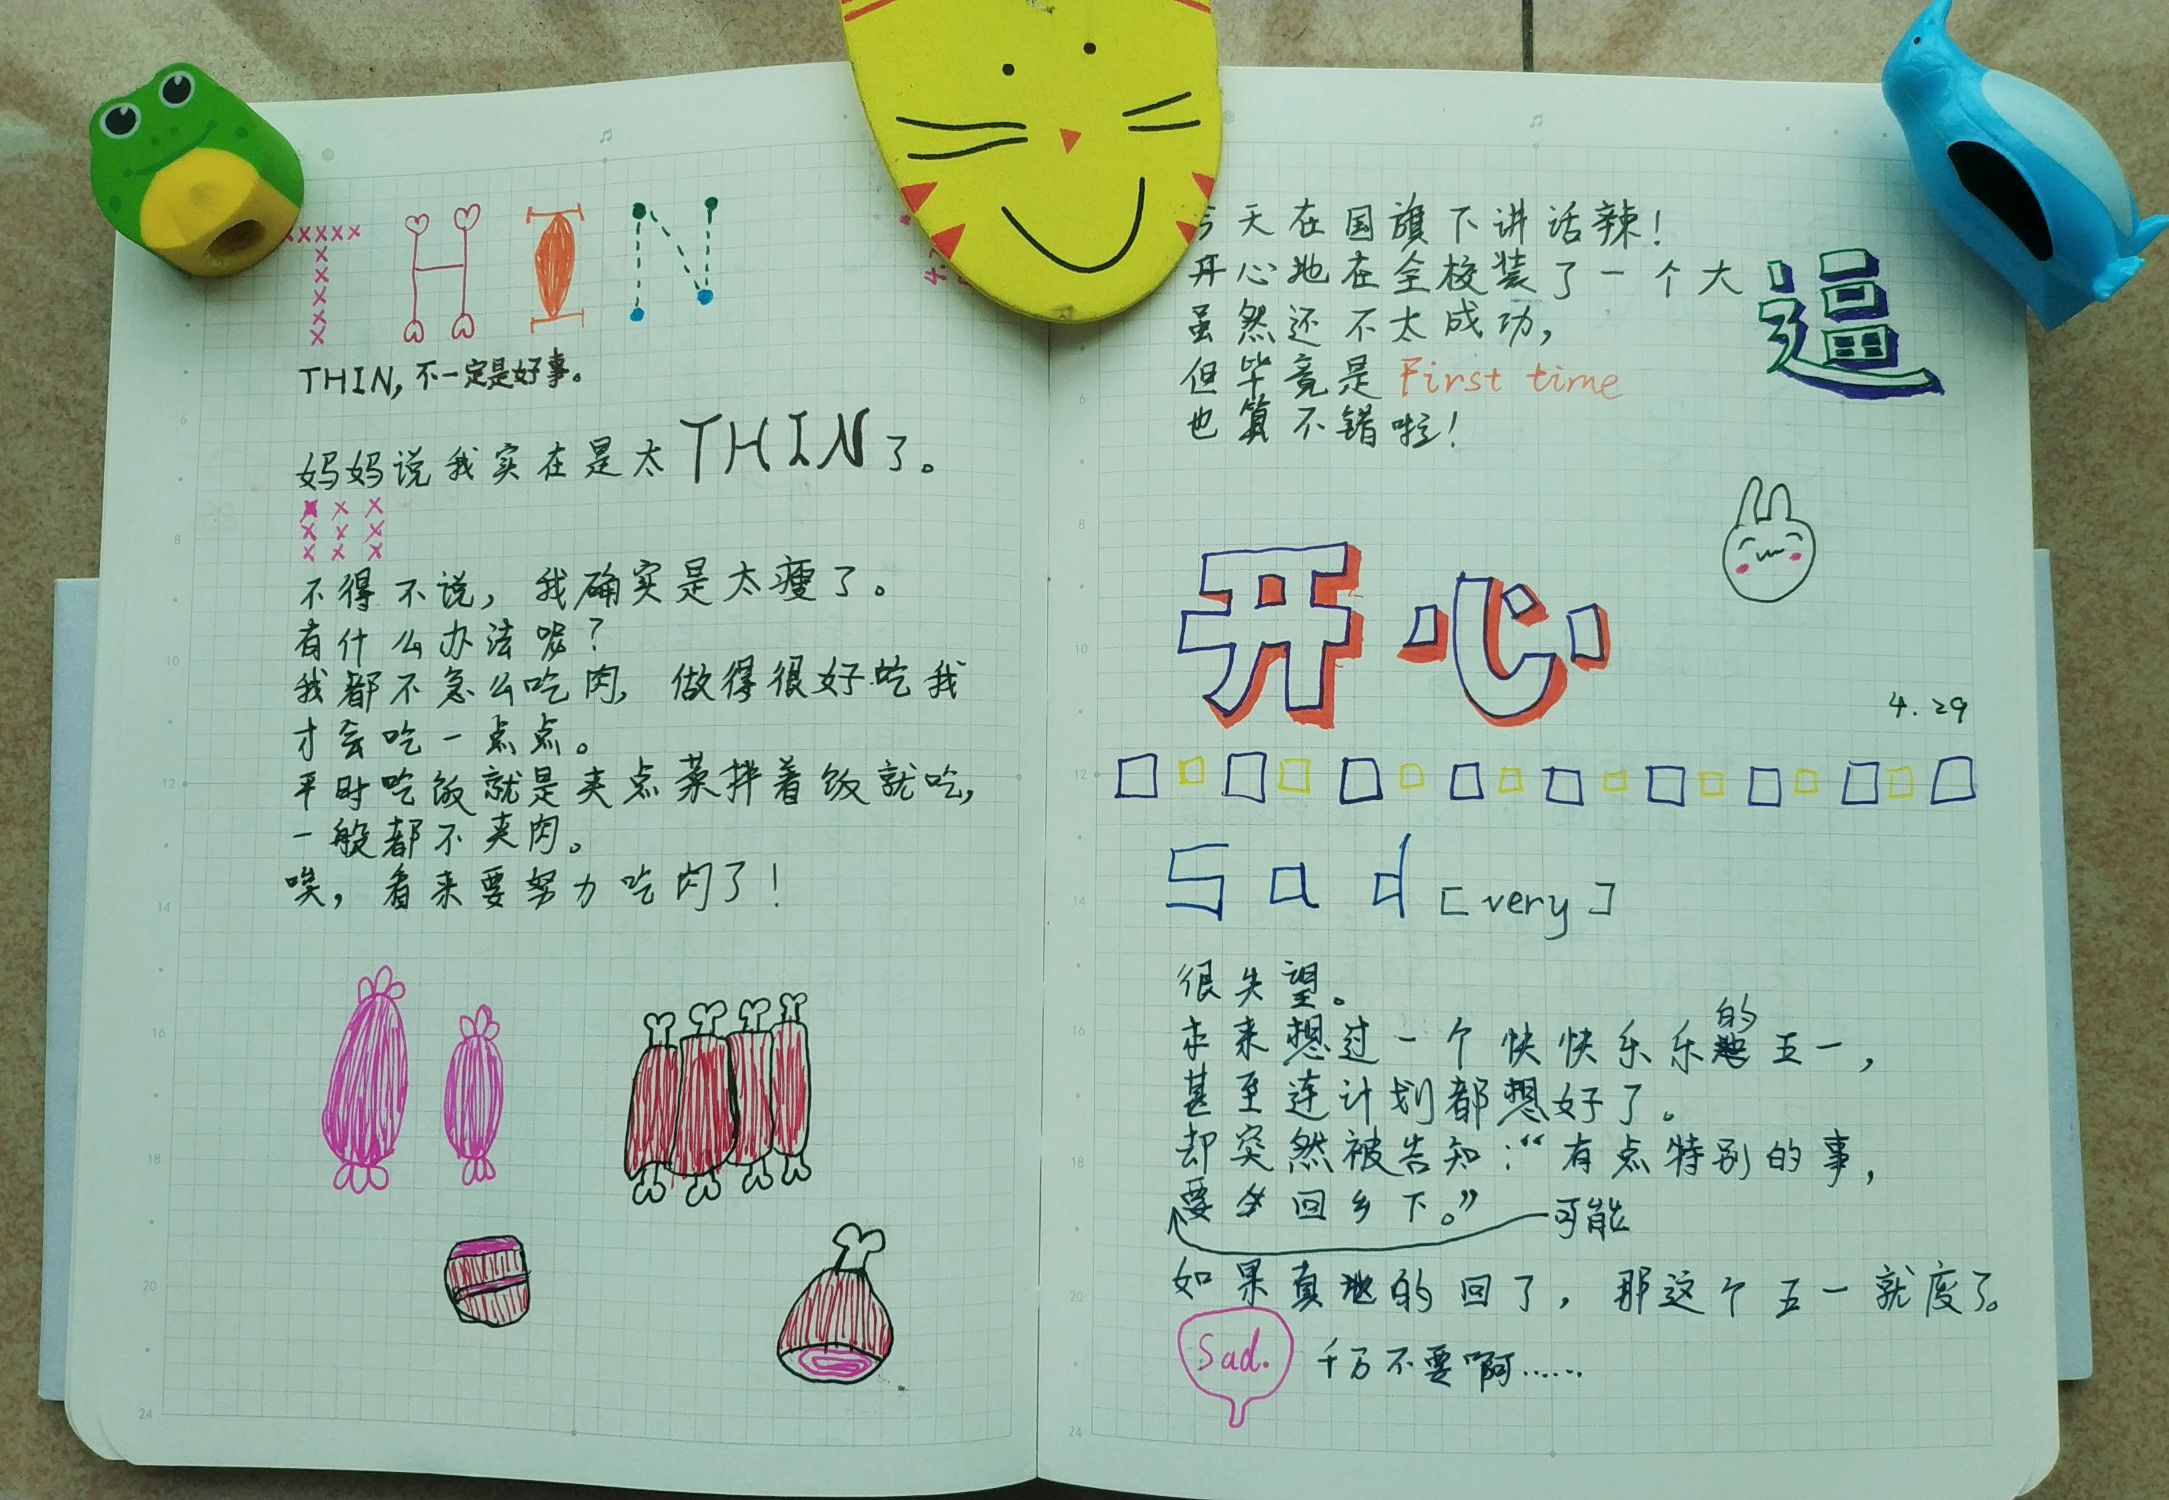 THIN
THIN,不一定是好事。
妈妈说我实在是太THIN了。
不得不说，我确实是太瘦了。
有什么办法呢？
我都不怎么吃肉，做得很好吃我
才会吃一点点。
平时吃饭就是夹点菜拌着饭就吃，
一般都不夹肉。
唉，看来要努力吃肉了！
今天在国旗下讲话辣！
开心地在全校装了一个大逼
虽然还不太成功，
但毕竟是First time
也算不错啦！
开心
4.29
Sad [very]
很失望。
本来想过一个快快乐乐的五一，
甚至连计划都想好了。
却突然被告知：“有点特别的事，
要回乡下。”
可能
如果真的回了，那这个五一就废了。
Sad.
千万不要啊……